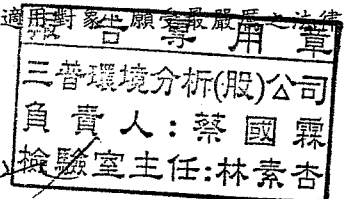 適用對象，願受最嚴厲之法律
報告專用章
三普環境分析(股)公司
負責人：蔡國霖
檢驗室主任:林素杏